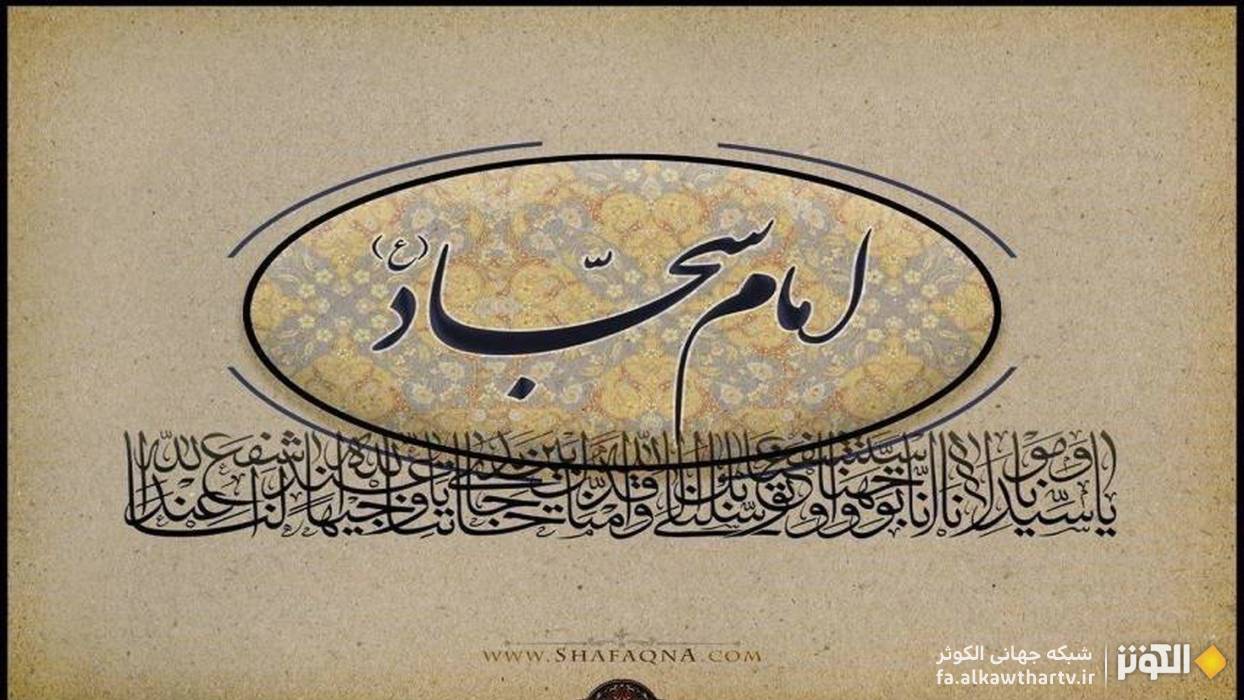 امام سجّاد (ع)
یا سیدنا و مولانا انا توجهنا و استشفعنا و توسلنا بک الی الله و قدمناک بین یدی حاجاتنا یا وجیها عند الله اشفع لنا عند الله
www.Shafaqna.com
شبکه جهانی الکوثر
الکوثر
fa.alkawthartv.ir